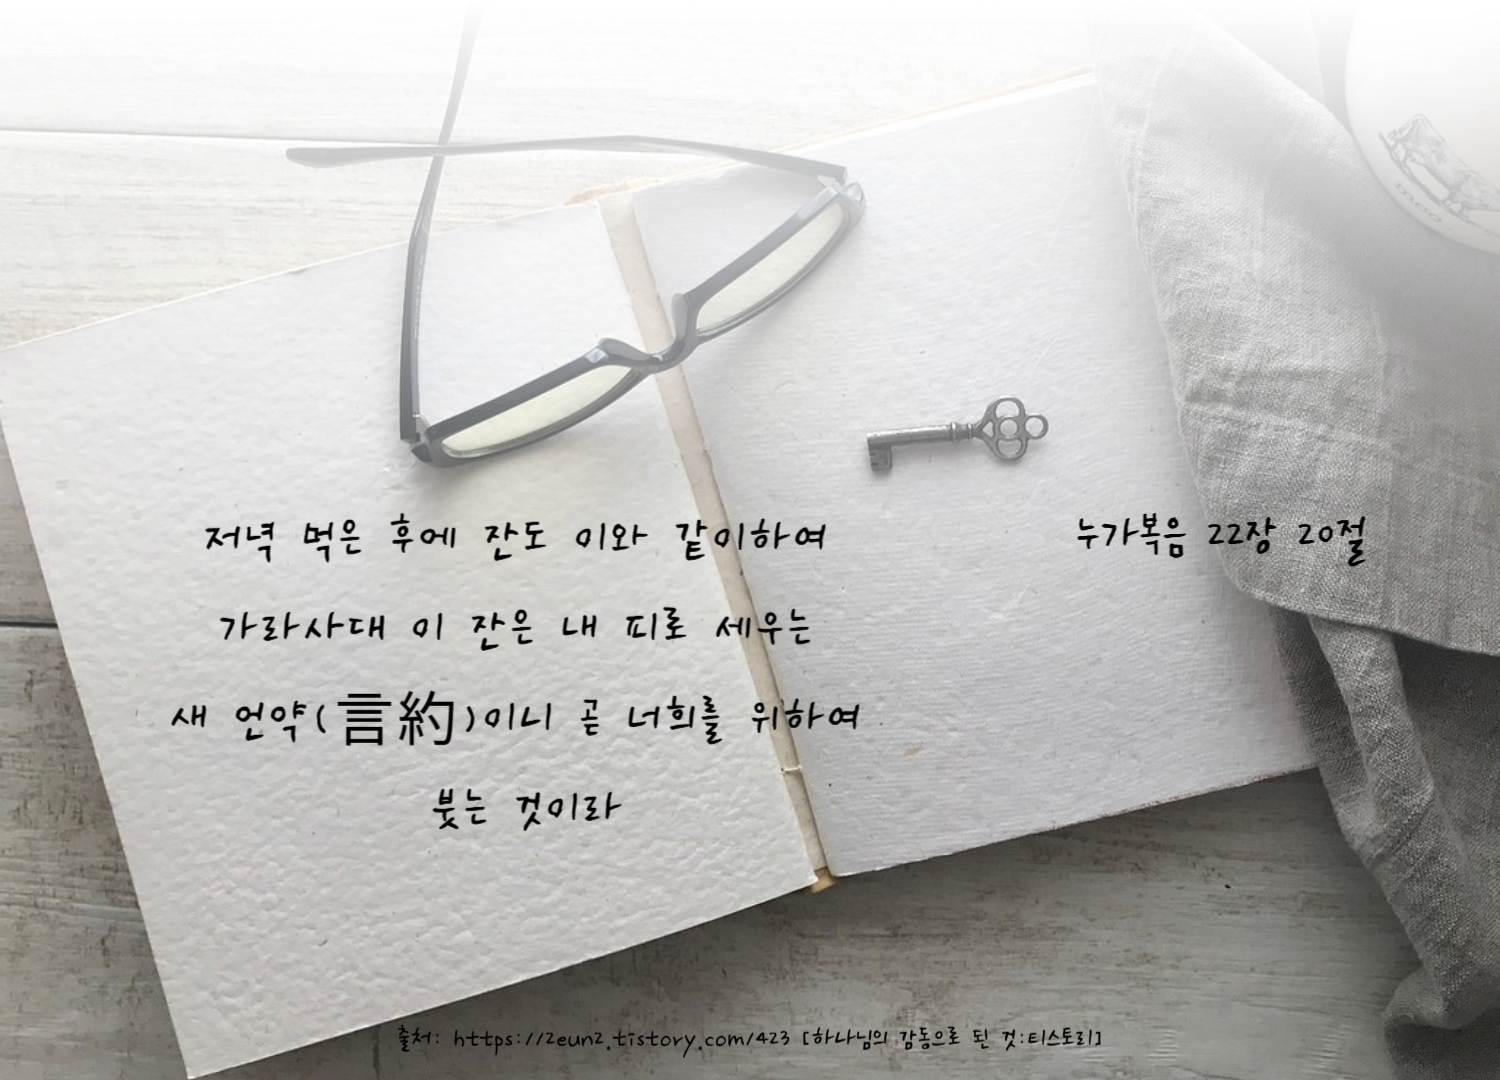 저녁 먹은 후에 잔도 이와 같이하여
가라사대 이 잔은 내 피로 세우는
새 언약(言約)이니 곧 너희를 위하여
붓는 것이라
누가복음 22장 20절
moo
출처: https://2eun2.tistory.com/423 [하나님의 감동으로 된 것:티스토리]